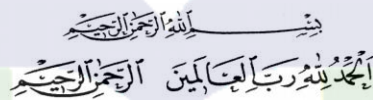 بِسْمِ اللَّهِ الرَّحْمَٰنِ الرَّحِيمِ
اَلْحَمْدُ لِلَّهِ رَبِّ الْعَالَمِينَ الرَّحْمَٰنِ الرَّحِيمِ